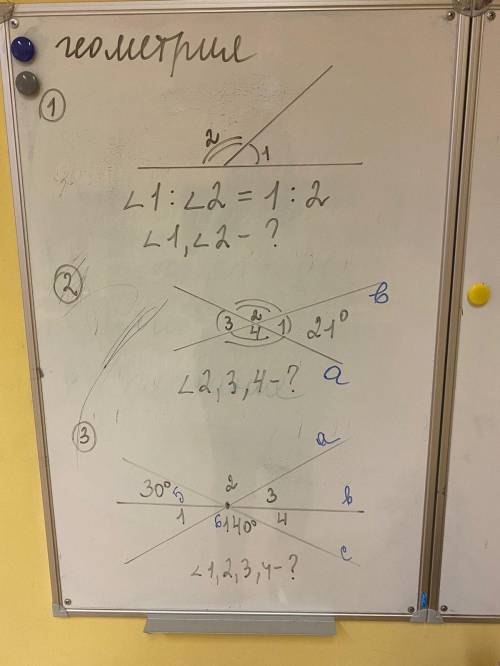 геометрия
1
2 1
∠1 : ∠2 = 1 : 2
∠1, ∠2 - ?
2
в
3 2 4 1 21°
а
∠2, 3, 4 - ?
3
а
30° 5 2 3 в
1 6 140° 4
с
∠1, 2, 3, 4 - ?